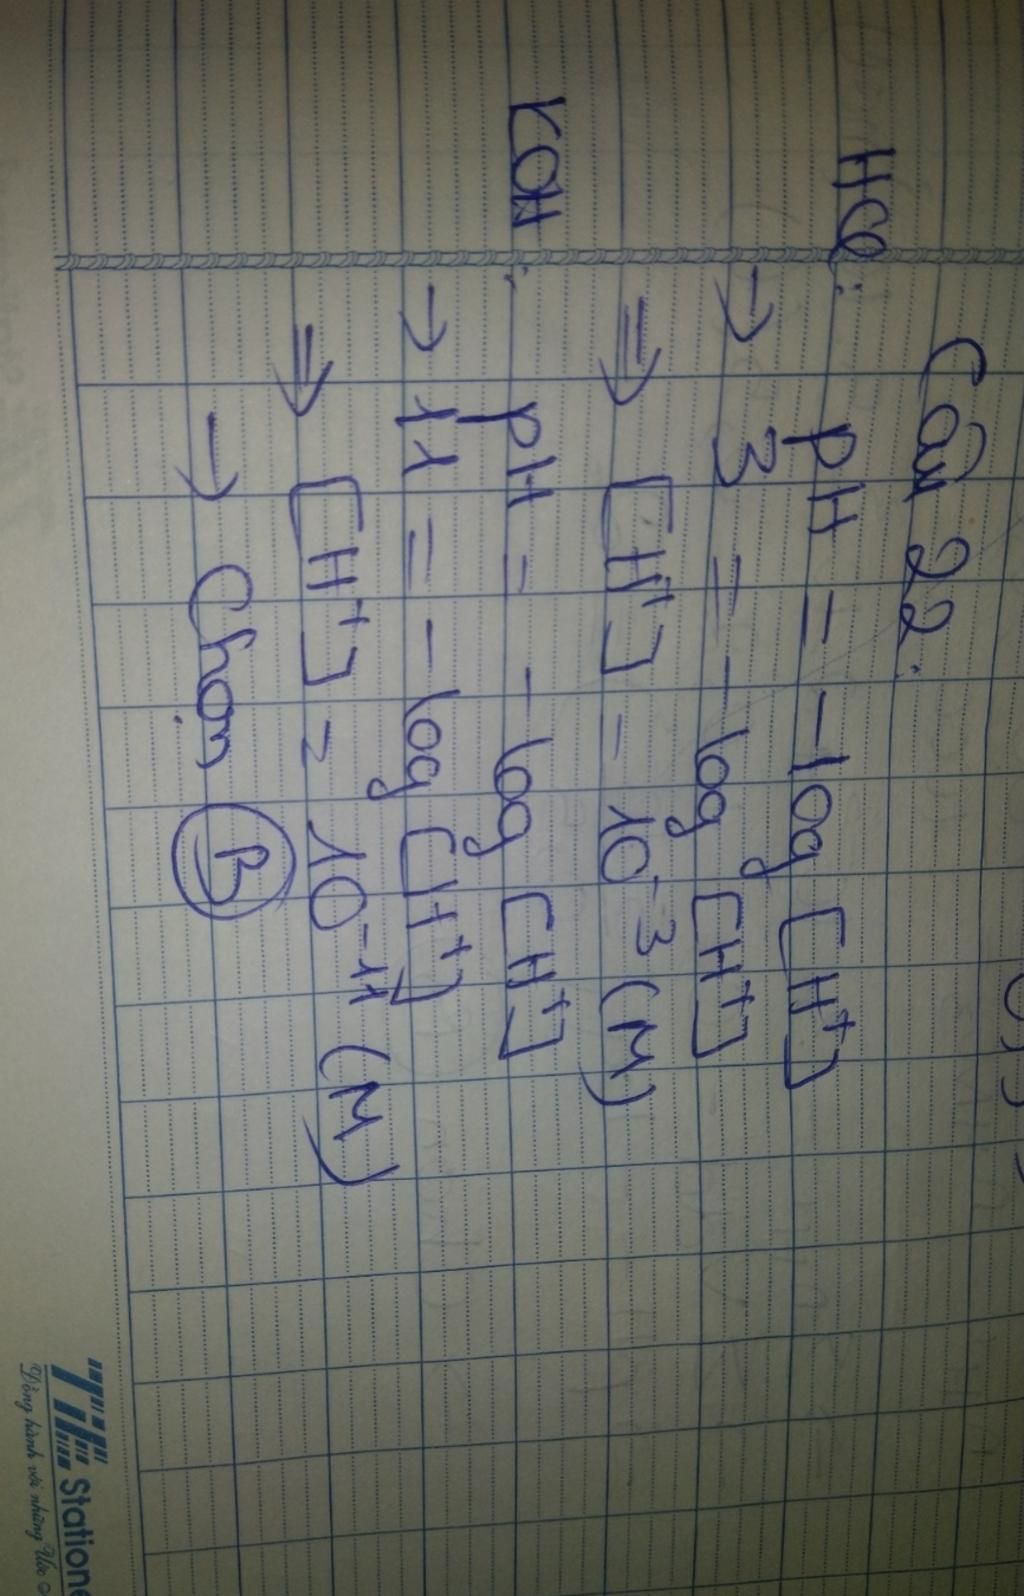 Câu 22:
HCl: pH = -log [H⁺]
→ 3 = -log [H⁺]
⇒ [H⁺] = 10⁻³ (M)
KOH: pH = -log [H⁺]
→ 11 = -log [H⁺]
⇒ [H⁺] = 10⁻¹¹ (M)
→ Chọn B
TH Statione
Đồng hành với những Ước